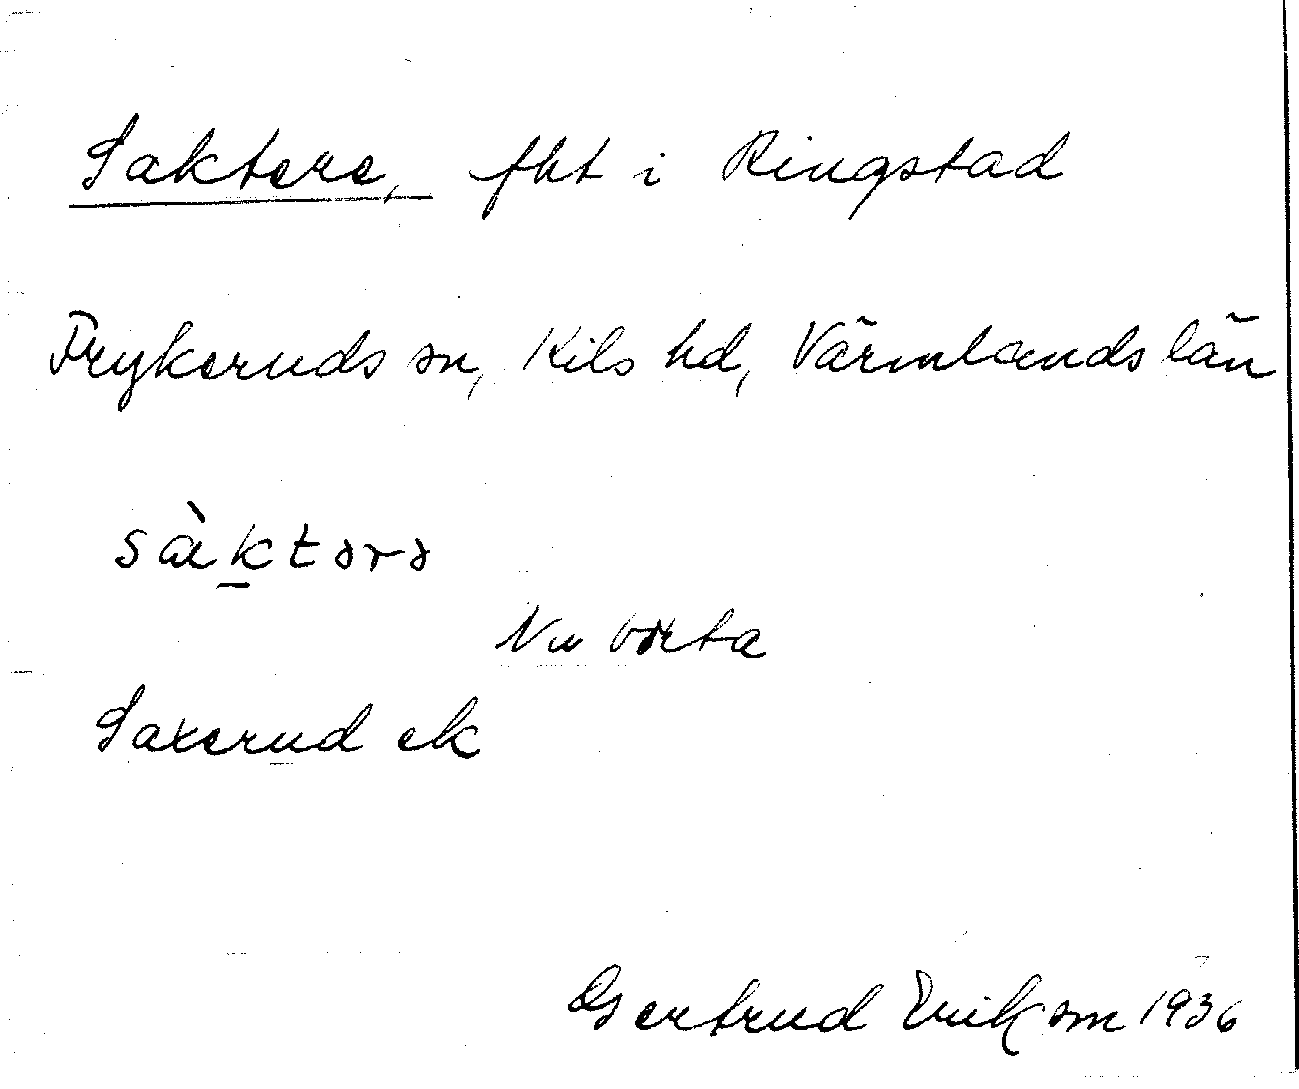 Saktere, fht i Ringstad
Frykeruds sn, Kils hd, Värmlands län
sàktərə
Nu borta
Saxerud ek
Gertrud Eriksson 1936